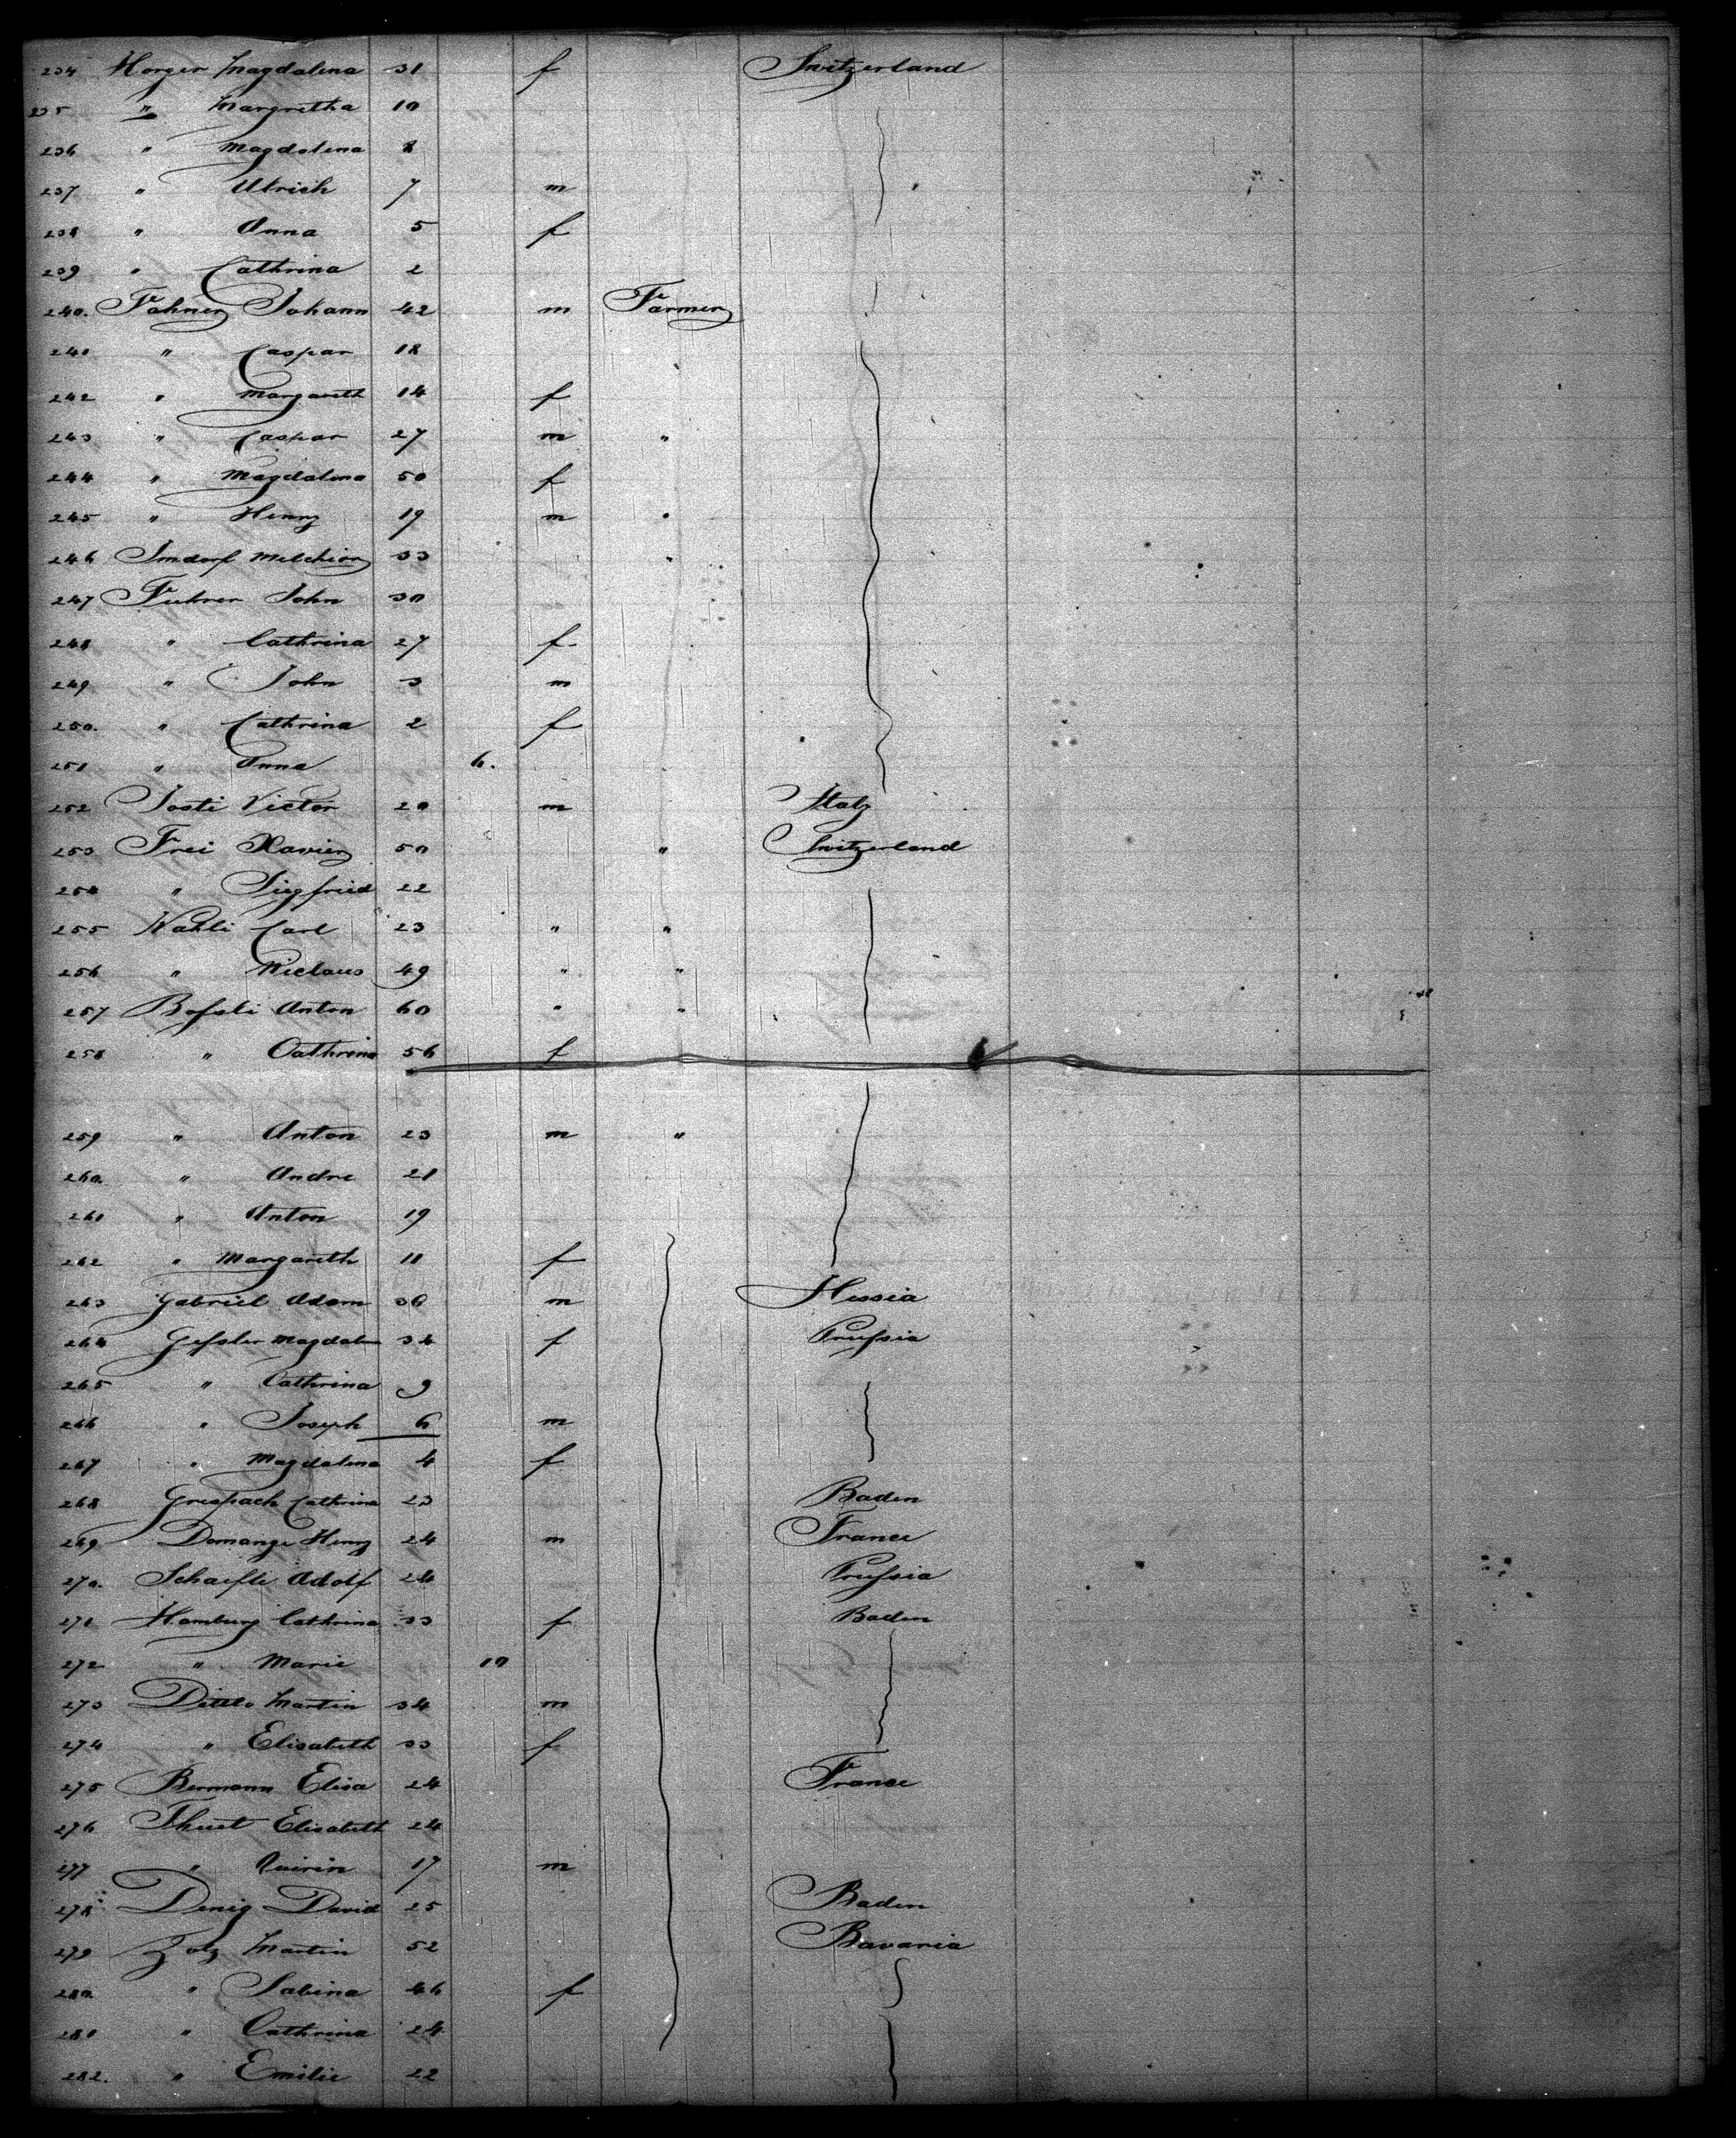 234 Horger Magdalena 31 f Switzerland
235 " Margretha 10
236 " Magdalena 8
237 " Ulrich 7 m
238 " Anna 5 f
239 " Cathrina 2
240. Fahner Johann 42 m Farmer
241 " Caspar 18 "
242 " Margareth 14 f
243 " Caspar 27 m "
244 " Magdalena 50 f
245 " Henry 19 m "
246 Imdorf Melchior 33 "
247 Fuhrer John 30
248 " Cathrina 27 f
249 " John 3 m
250. " Cathrina 2 f
251 " Anna 6.
252 Josti Victor 20 m Italy
253 Frei Xavier 50 " Switzerland
254 " Siegfried 22
255 Wahli Carl 23 " "
256 " Niclaus 49 " "
257 Bossli Anton 60 " "
258 " Cathrina 56 f
259 " Anton 23 m "
260. " Andre 21
261 " Anton 19
262 " Margareth 11 f
263 Gabriel Adam 36 m Hessia
264 Gessler Magdalena 34 f Prussia
265 " Cathrina 9
266 " Joseph 6 m
267 " Magdalena 4 f
268 Cathrina 23 Baden
269 Domange Henry 24 m France
270. Schaefle Adolf 24 Prussia
271 Hamburg Cathrina 33 f Baden
272 " Marie 10
273 Martin 34 m
274 " Elisabeth 33 f
275 Bermann Elisa 24 France
276 Thuet Elisabeth 24
277 " Quirin 17 m
278 Denig David 25 Baden
279 Zolg Martin 52 Bavaria
280. " Sabina 46 f
281 " Cathrina 24
282. " Emilie 22